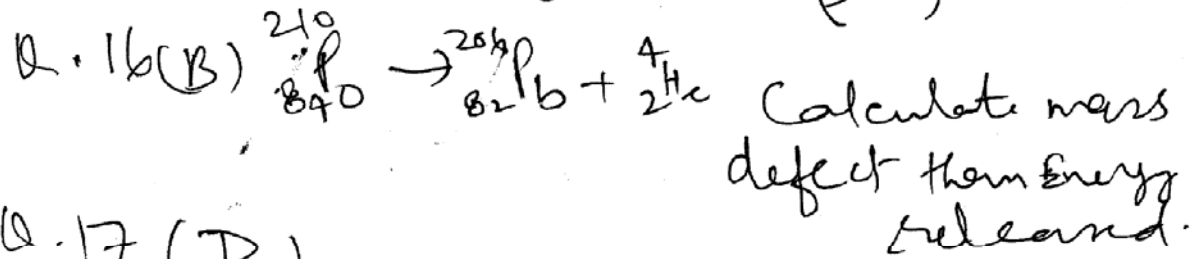 Q.16(B) ²¹⁰₈₄Po → ²⁰⁶₈₂Pb + ⁴₂He Calculate mass
defect then Energy
released.
Q.17 (D)